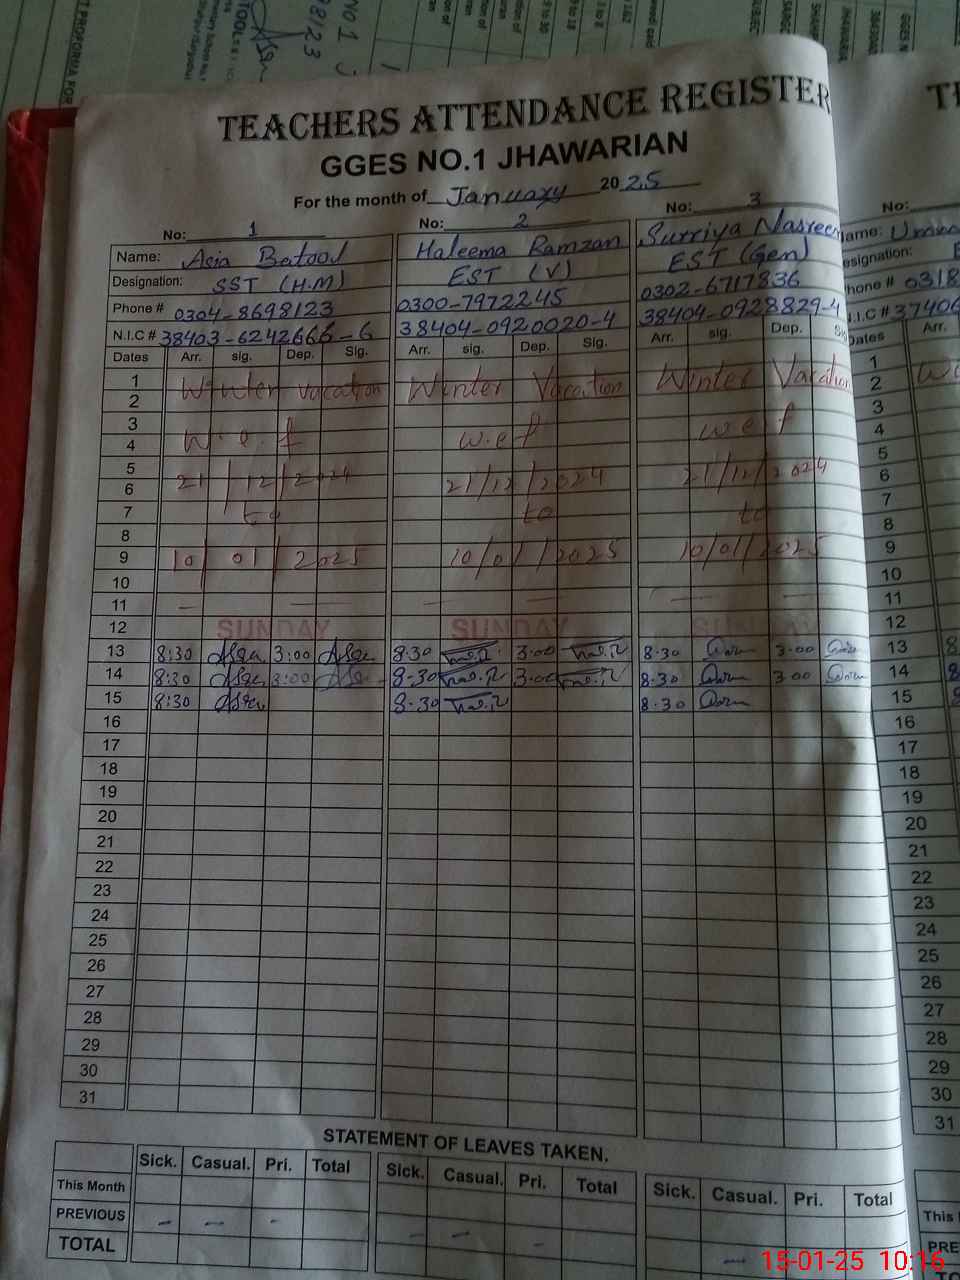 TEACHERS ATTENDANCE REGISTER
GGES NO.1 JHAWARIAN
For the month of January 2025
No: 1 No: 2 No: 3 No:
Name: Asia Batool Haleema Ramzan Surriya Nasreen
Designation: SST (H.M) EST (V) EST (Gen)
Phone # 0304-8698123 0300-7972245 0302-6717836 0318
N.I.C # 38403-6242666-6 38404-0920020-4 38404-0928829-4 37406
Dates Arr. sig. Dep. Sig. Arr. sig. Dep. Sig. Arr. sig. Dep. Dates Arr.
1 Winter vacation Winter Vacation Winter Vacation 1
2 2
3 3
4 w.e.f w.e.f w.e.f 4
5 5
6 21/12/2024 21/12/2024 21/12/2024 6
7 to to to 7
8 8
9 10/01/2025 10/01/2025 10/01/2025 9
10 10
11 — — — — — — 11
12 SUNDAY SUNDAY SUNDAY 12
13 8:30 3:00 8.30 3.00 8.30 3.00 13
14 8:30 3:00 8.30 3.00 8.30 3.00 14
15 8:30 8.30 8.30 15
16 16
17 17
18 18
19 19
20 20
21 21
22 22
23 23
24 24
25 25
26 26
27 27
28 28
29 29
30 30
31 31
STATEMENT OF LEAVES TAKEN.
Sick. Casual. Pri. Total Sick. Casual. Pri. Total Sick. Casual. Pri. Total
This Month
PREVIOUS — — - — — -
TOTAL —
15-01-25 10:16